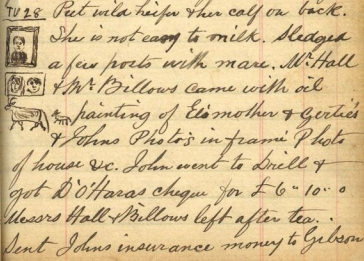 TU 28 Put wild heifer & her calf on back.
She is not easy to milk. Sledged
a few posts with mare. Mr Hall
& Mr Billows came with oil
painting of E's mother & Gertie's
& Johns Photo's in frame Photo
of house &c. John went to Drell &
got D'O'Haras cheque for £6"10"0
Messrs Hall & Billows left after tea.
Sent Johns insurance money to Gibson